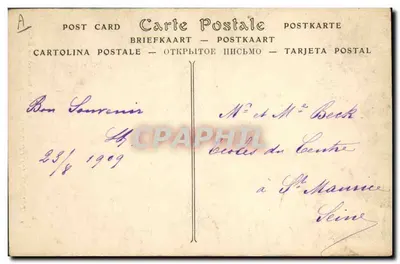 A
POST CARD Carte Postale POSTKARTE
BRIEFKAART — POSTKAART
CARTOLINA POSTALE — ОТКРЫТОЕ ПИСЬМО — TARJETA POSTAL
Bon Souvenir
23/8 1909
Mr et Me Beck
Ecoles du Centre
à St Maurice
Seine
CPAPHIL